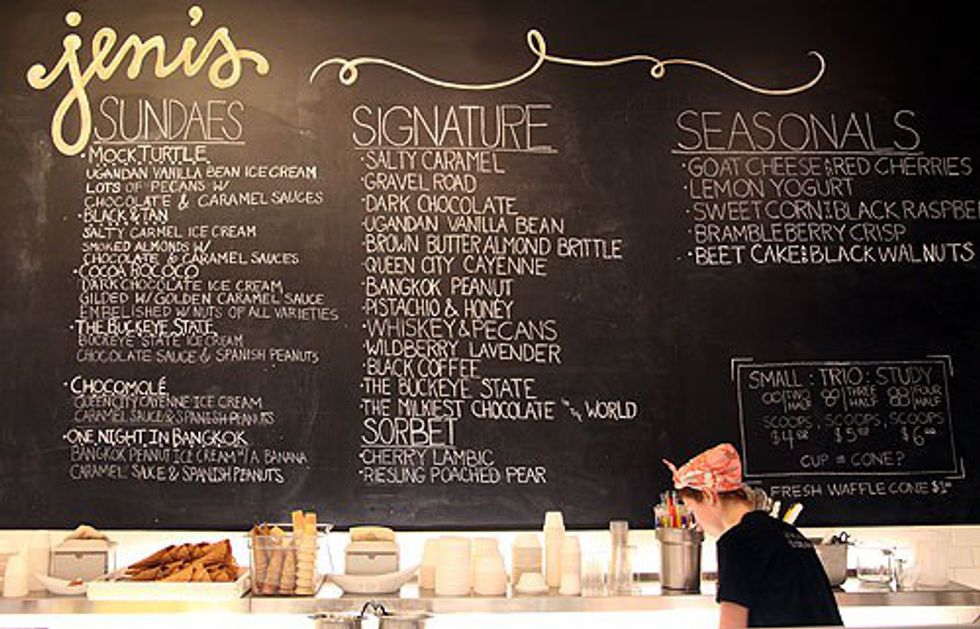 jeni's
SUNDAES
·MOCK TURTLE
UGANDAN VANILLA BEAN ICE CREAM
LOTS OF PECANS W/
CHOCOLATE & CARAMEL SAUCES
·BLACK & TAN
SALTY CARMEL ICE CREAM
SMOKED ALMONDS W/
CHOCOLATE & CARAMEL SAUCES
·COCOA ROCOCO
DARK CHOCOLATE ICE CREAM
GILDED W/ GOLDEN CARAMEL SAUCE
EMBELISHED W/ NUTS OF ALL VARIETIES
·THE BUCKEYE STATE
BUCKEYE STATE ICE CREAM
CHOCOLATE SAUCE & SPANISH PEANUTS
·CHOCOMOLÉ
QUEEN CITY CAYENNE ICE CREAM
CARAMEL SAUCE & SPANISH PEANUTS
·ONE NIGHT IN BANGKOK
BANGKOK PEANUT ICE CREAM W/ A BANANA
CARAMEL SAUCE & SPANISH PEANUTS
SIGNATURE
·SALTY CARAMEL
·GRAVEL ROAD
·DARK CHOCOLATE
·UGANDAN VANILLA BEAN
·BROWN BUTTER ALMOND BRITTLE
·QUEEN CITY CAYENNE
·BANGKOK PEANUT
·PISTACHIO & HONEY
·WHISKEY & PECANS
·WILDBERRY LAVENDER
·BLACK COFFEE
·THE BUCKEYE STATE
·THE MILKIEST CHOCOLATE IN THE WORLD
SORBET
·CHERRY LAMBIC
·RIESLING POACHED PEAR
SEASONALS
·GOAT CHEESE & RED CHERRIES
·LEMON YOGURT
·SWEET CORN & BLACK RASPBE
·BRAMBLEBERRY CRISP
·BEET CAKE AND BLACK WALNUTS
SMALL : TRIO : STUDY
TWO HALF THREE HALF FOUR HALF
SCOOPS SCOOPS SCOOPS
$4 $5 $6
CUP OR CONE?
FRESH WAFFLE CONE $1